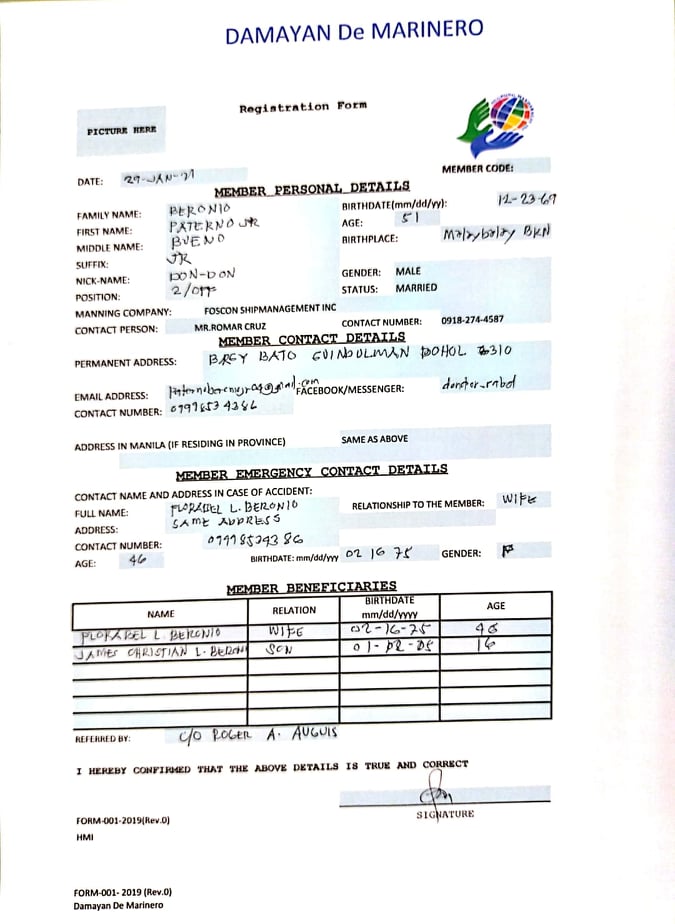 DAMAYAN De MARINERO
Registration Form
PICTURE HERE
MEMBER CODE:
DATE: 29-JAN-21
MEMBER PERSONAL DETAILS
FAMILY NAME: BERONIO BIRTHDATE(mm/dd/yy): 12-23-69
FIRST NAME: PATERNO JR AGE: 51
MIDDLE NAME: BUENO BIRTHPLACE: Malaybalay BKN
SUFFIX: JR
NICK-NAME: DON-DON GENDER: MALE
POSITION: 2/OFF STATUS: MARRIED
MANNING COMPANY: FOSCON SHIPMANAGEMENT INC
CONTACT PERSON: MR.ROMAR CRUZ CONTACT NUMBER: 0918-274-4587
MEMBER CONTACT DETAILS
PERMANENT ADDRESS: BRGY BATO GUINDULMAN BOHOL 6310
EMAIL ADDRESS: FACEBOOK/MESSENGER:
CONTACT NUMBER: 09998534386
ADDRESS IN MANILA (IF RESIDING IN PROVINCE) SAME AS ABOVE
MEMBER EMERGENCY CONTACT DETAILS
CONTACT NAME AND ADDRESS IN CASE OF ACCIDENT:
FULL NAME: FLORABEL L. BERONIO RELATIONSHIP TO THE MEMBER: WIFE
ADDRESS: SAME ADDRESS
CONTACT NUMBER: 09998534386
AGE: 46 BIRTHDATE: mm/dd/yyy 02 16 75 GENDER: F
MEMBER BENEFICIARIES
NAME RELATION BIRTHDATE mm/dd/yyyy AGE
FLORABEL L. BERONIO WIFE 02-16-75 46
JAMES CHRISTIAN L. BERONI SON 01-02-05 16
REFERRED BY: C/O ROGER A. AUGUIS
I HEREBY CONFIRMED THAT THE ABOVE DETAILS IS TRUE AND CORRECT
SIGNATURE
FORM-001-2019(Rev.0)
HMI
FORM-001- 2019 (Rev.0)
Damayan De Marinero